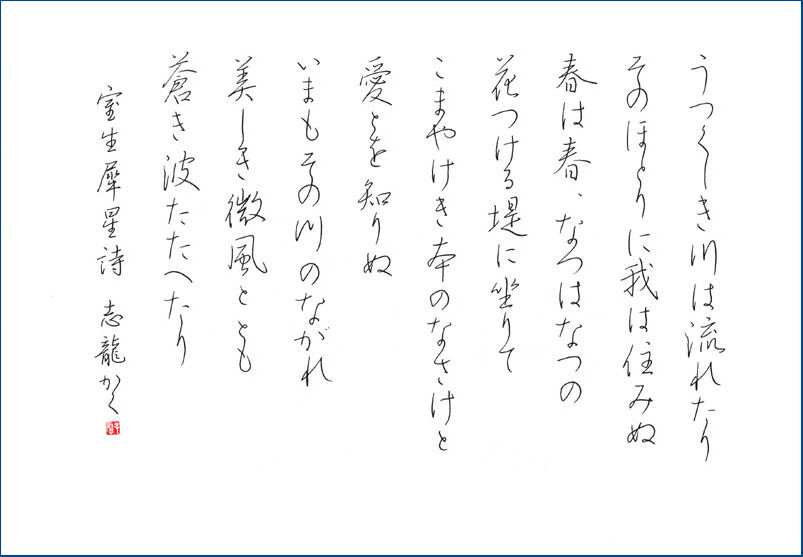 うつくしき川は流れたり
そのほとりに我は住みぬ
春は春、なつはなつの
花つける堤に坐りて
こまやけき本のなさけと
愛とを知りぬ
いまもその川のながれ
美しき微風ととも
蒼き波たたへたり
室生犀星詩 志龍かく